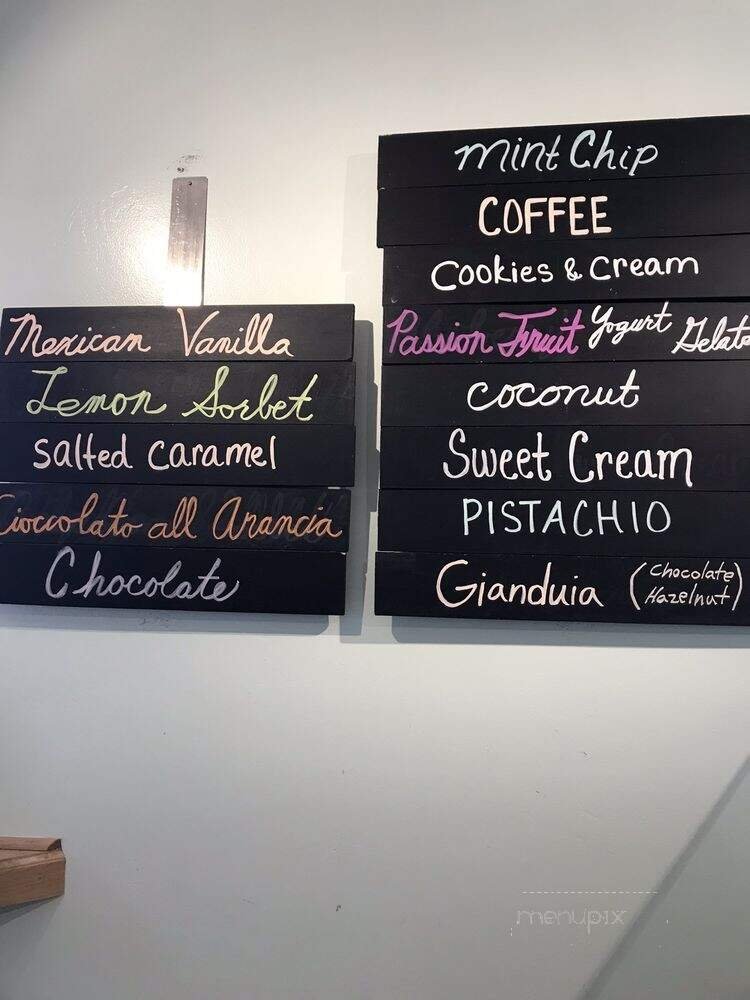 Mexican Vanilla
Lemon Sorbet
Salted Caramel
Cioccolato all Arancia
Chocolate
mint Chip
COFFEE
Cookies & Cream
Passion Fruit Yogurt Gelato
coconut
Sweet Cream
PISTACHIO
Gianduia (Chocolate
Hazelnut)
menupix